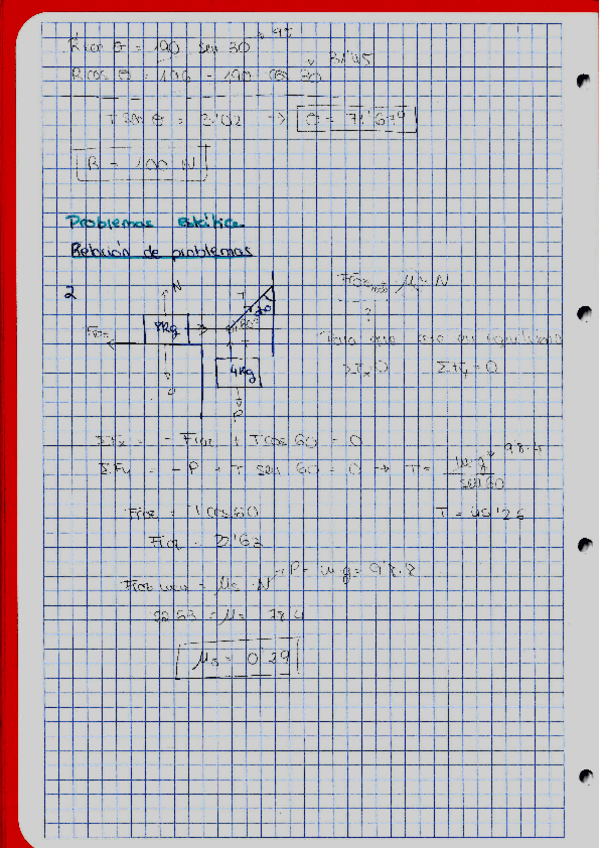 R cos θ = 190 sen 30 → 95
R cos θ = 196 - 190 cos 30 → 31'45
Tan θ = 3'02 → θ = 71'67º
R = 100 N
Problemas estática
Relación de problemas
2
N
T
Froz
8kg
30
60
T
4kg
P
Froz máx = μs · N
?
Para que esté en equilibrio
ΣFx=0 ΣFy=0
ΣFx = - Froz + T cos 60 = 0
ΣFy = - P + T sen 60 = 0 → T = m·g / sen 60 → 9'8·4
Froz = T cos 60
T = 45'26
Froz = 22'63
Froz max = μs · N → P = m·g = 9'8·8
22'63 = μs 78'4
μs = 0'29